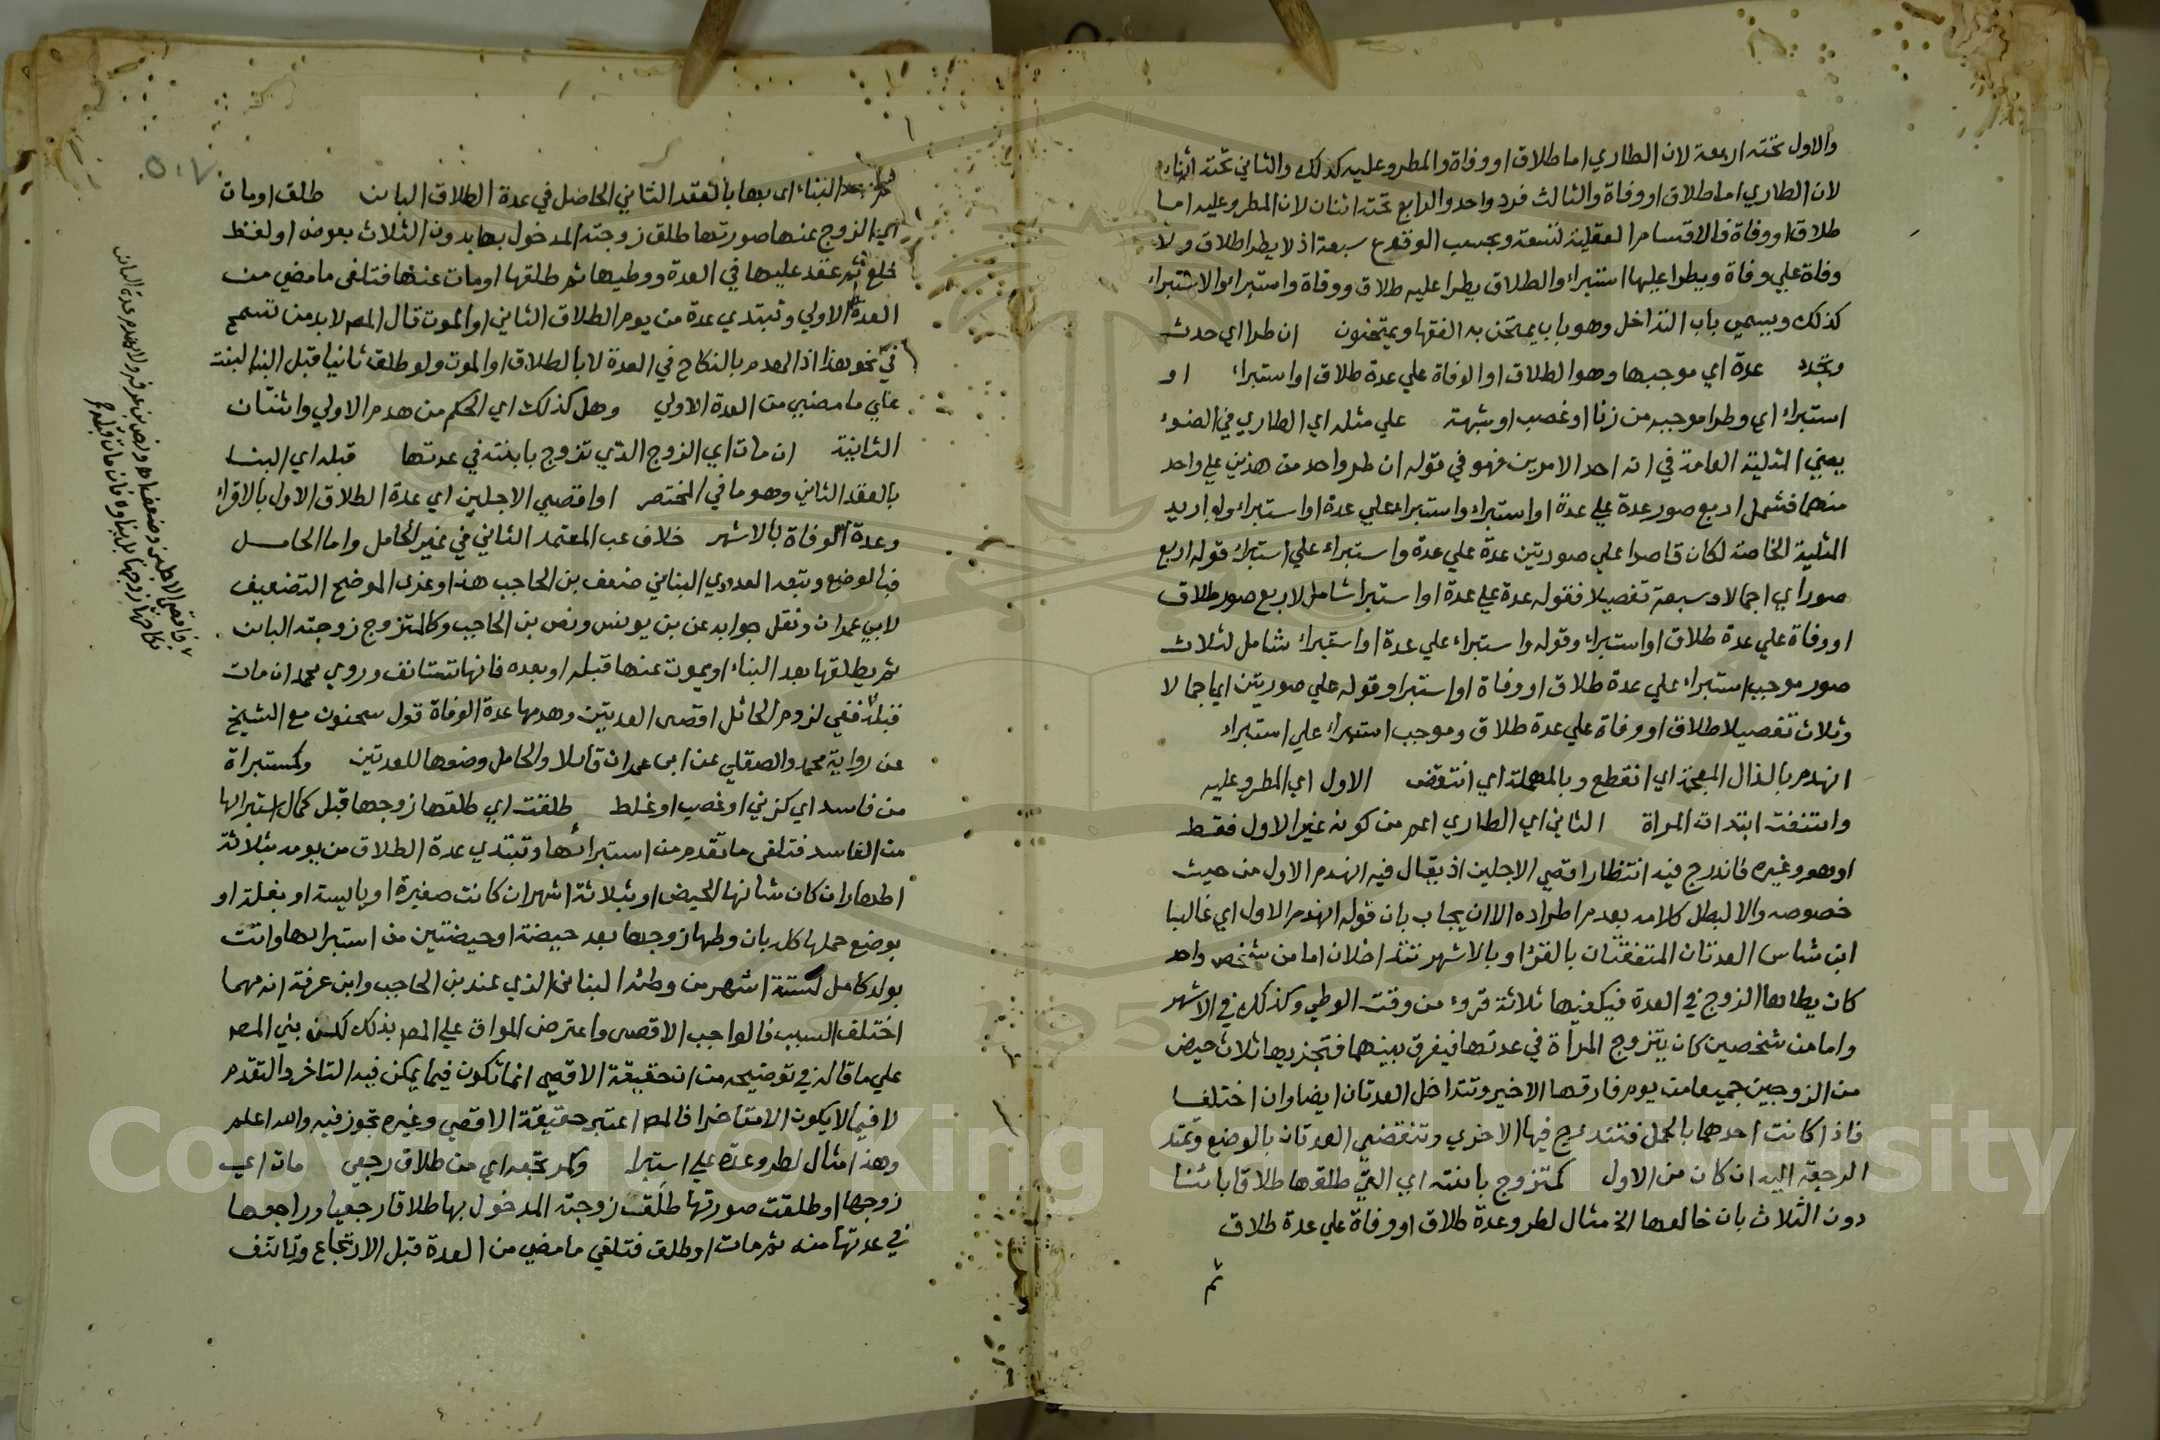 والاول تحته اربعة لان الطاري اما طلاق او وفاة والمطرو عليه كذلك والثاني تحته اثنان
لان الطاري اما طلاق او وفاة والثالث فرد واحد والرابع تحته اثنان لان المطرو عليه اما
طلاق او وفاة فالاقسام العقلية تسعة وبحسب الوقوع سبعة اذ لا يطرا طلاق ولا
وفاة علي وفاة ويطرا عليها استبراء والطلاق يطرا عليه طلاق ووفاة واستبراء والاستبراء
كذلك ويسمي باب التداخل وهو باب يمتحن به الفقها ويمتحنون ان طرا اي حدث
وتجدد عدة اي موجبها وهو الطلاق او الوفاة علي عدة طلاق او استبراء او
استبراء اي وطرا موجبه من زنا او غصب او شبهة علي مثله اي الطاري في النوع
يعني المثلية العامة في انه احد الامرين فهو في قوله ان طرا واحد من هذين علي واحد
منهما فشمل اربع صور عدة علي عدة او استبراء واستبراء علي عدة او استبراء ولو اريد
المثلية الخاصة لكان قاصرا علي صورتين عدة علي عدة واستبراء علي استبراء قوله اربع
صور اي اجمالا وسبعة تفصيلا فقوله عدة علي عدة او استبرا شامل لاربع صور طلاق
او وفاة علي عدة طلاق او استبراء وقوله واستبراء علي عدة او استبراء شامل لثلاث
صور موجب استبراء علي عدة طلاق او وفاة او استبرا وقوله علي صورتين اي اجمالا
وثلاث تفصيلا طلاق او وفاة علي عدة طلاق وموجب استبراء علي استبراء
انهدم بالذال المعجمة اي انقطع وبالمهملة اي انتقض الاول اي المطرو عليه
وائتنفت ابتدات المراة الثاني اي الطاري اعم من كونه غير الاول فقط
او هو وغيره فاندرج فيه انتظار اقصي الاجلين اذ يقال فيه انهدم الاول من حيث
خصوصه والا لبطل كلامه بعدم اطراده الا ان يجاب بان قوله انهدم الاول اي غالبا
ابن شاس العدتان المتفقتان بالقرء او بالاشهر تتداخلان اما من شخص واحد
كان يطاها الزوج في العدة فيكفيها ثلاثة قروء من وقت الوطي وكذلك في الاشهر
واما من شخصين كان يتزوج المرأة في عدتها فيفرق بينهما فتجزيها ثلاث حيض
من الزوجين جميعا من يوم فارقها الاخير وتتداخل العدتان ايضا وان اختلفا
فاذا كانت احدهما بالحمل فتندرج فيها الاخري وتنقضي العدتان بالوضع وتمتد
الرجعة اليه ان كان من الاول كمتزوج باينته اي التي طلقها طلاقا باينا
دون الثلاث بان خالعها الخ مثال لطرو عدة طلاق او وفاة علي عدة طلاق
ثم
البناء اي بها بالعقد الثاني الحاصل في عدة الطلاق الباين طلق او مات
اي الزوج عنها صورتها طلق زوجته المدخول بها بدون الثلاث بعوض او لفظ
خلع ثم عقد عليها في العدة ووطيها ثم طلقها او مات عنها فتلغى ما مضي من
العدة الاولي وتبتدي عدة من يوم الطلاق الثاني او الموت قال المص لابد من تسمح
في نحو هذا اذ الهدم بالنكاح في العدة لا بالطلاق او الموت ولو طلق ثانيا قبل البنا لبنت
علي ما مضي من العدة الاولي وهل كذلك اي الحكم من هدم الاولي وائتناف
الثانية ان مات اي الزوج الذي تزوج باينته في عدتها قبله اي البنا
بالعقد الثاني وهو ما في المختصر او اقصي الاجلين اي عدة الطلاق الاول بالاقراء
وعدة الوفاة بالاشهر خلاف عب المعتمد الثاني في غير الحامل واما الحامل
فبالوضع وتبعه العدوي البناني ضعف بن الحاجب هذا وعزى الموضح التضعيف
لابي عمران ونقل جوابه عن بن يونس ونص بن الحاجب وكالمتزوج زوجته الباين
ثم يطلقها بعد البناء او يموت عنها قبله او بعده فانها تستانف وروي محمد ان مات
قبله ففي لزوم الحائل اقصى العدتين وهدمها عدة الوفاة قول سحنون مع الشيخ
عن رواية محمد والصقلي عن ابي عمران قايلا والحامل وضعها للعدتين وكمستبراة
من فاسد اي كزني او غصب او غلط طلقت اي طلقها زوجها قبل كمال استبرائها
من الفاسد فتلغى ما تقدم من استبرائها وتبتدي عدة الطلاق من يومه بثلاثة
اطهار ان كان شانها الحيض او بثلاثة اشهر ان كانت صغيرة او يايسة او بغلة او
بوضع حملها كله بان وطيها زوجها بعد حيضة او حيضتين من استبرائها واتت
بولد كامل لستة اشهر من وطئه البناني الذي عند بن الحاجب وابن عرفة انه مهما
اختلف السبب فالواجب الاقصى واعترض المواق علي المص بذلك لكن بني المص
علي ما قاله في توضيحه من ان حقيقة الاقصي انما تكون فيما يمكن فيه التاخر والتقدم
لا فيما لا يكون الا متاخرا فالمص اعتبر حقيقة الاقصي وغيره تجوز فيه والله اعلم
وهذا مثال لطرو عدة علي استبرا وكمرتجعه اي من طلاق رجعي مات اي
زوجها او طلقت صورتها طلقت زوجته المدخول بها طلاقا رجعيا وراجعها
في عدتها منه ثم مات او طلق فتلغي ما مضي من العدة قبل الارتجاع وتاتنف